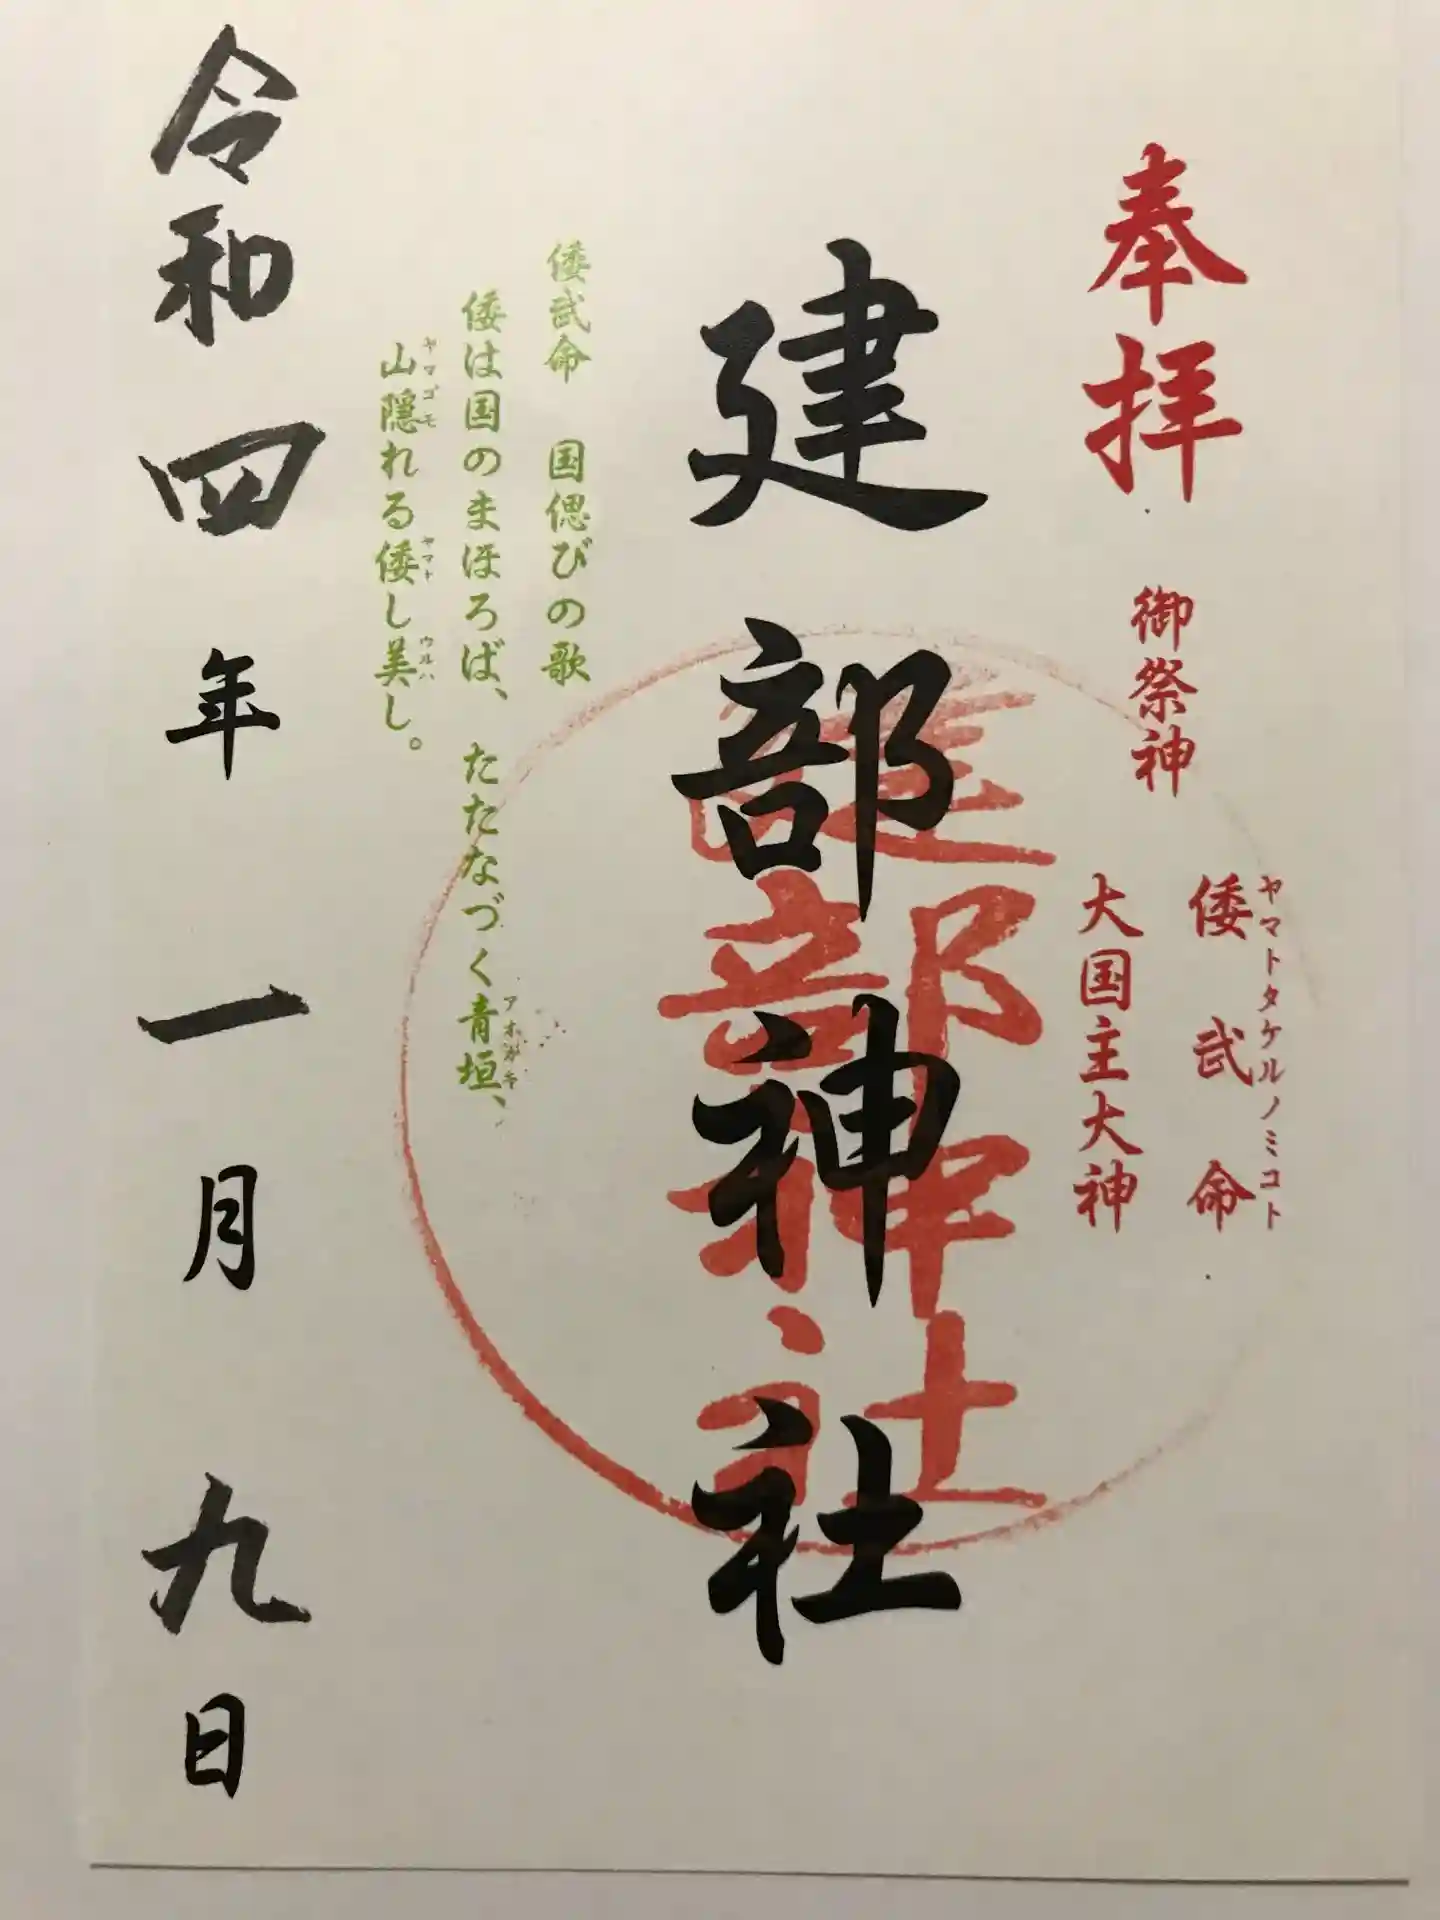 奉拝
御祭神
倭武命
ヤマトタケルノミコト
大国主大神
建部神社
建部神社
倭武命　国偲びの歌
倭は国のまほろば、たたなづく青垣、
アオガキ
山隠れる倭し美し。
ヤマゴモ
ヤマト
ウルハ
令和四年一月九日